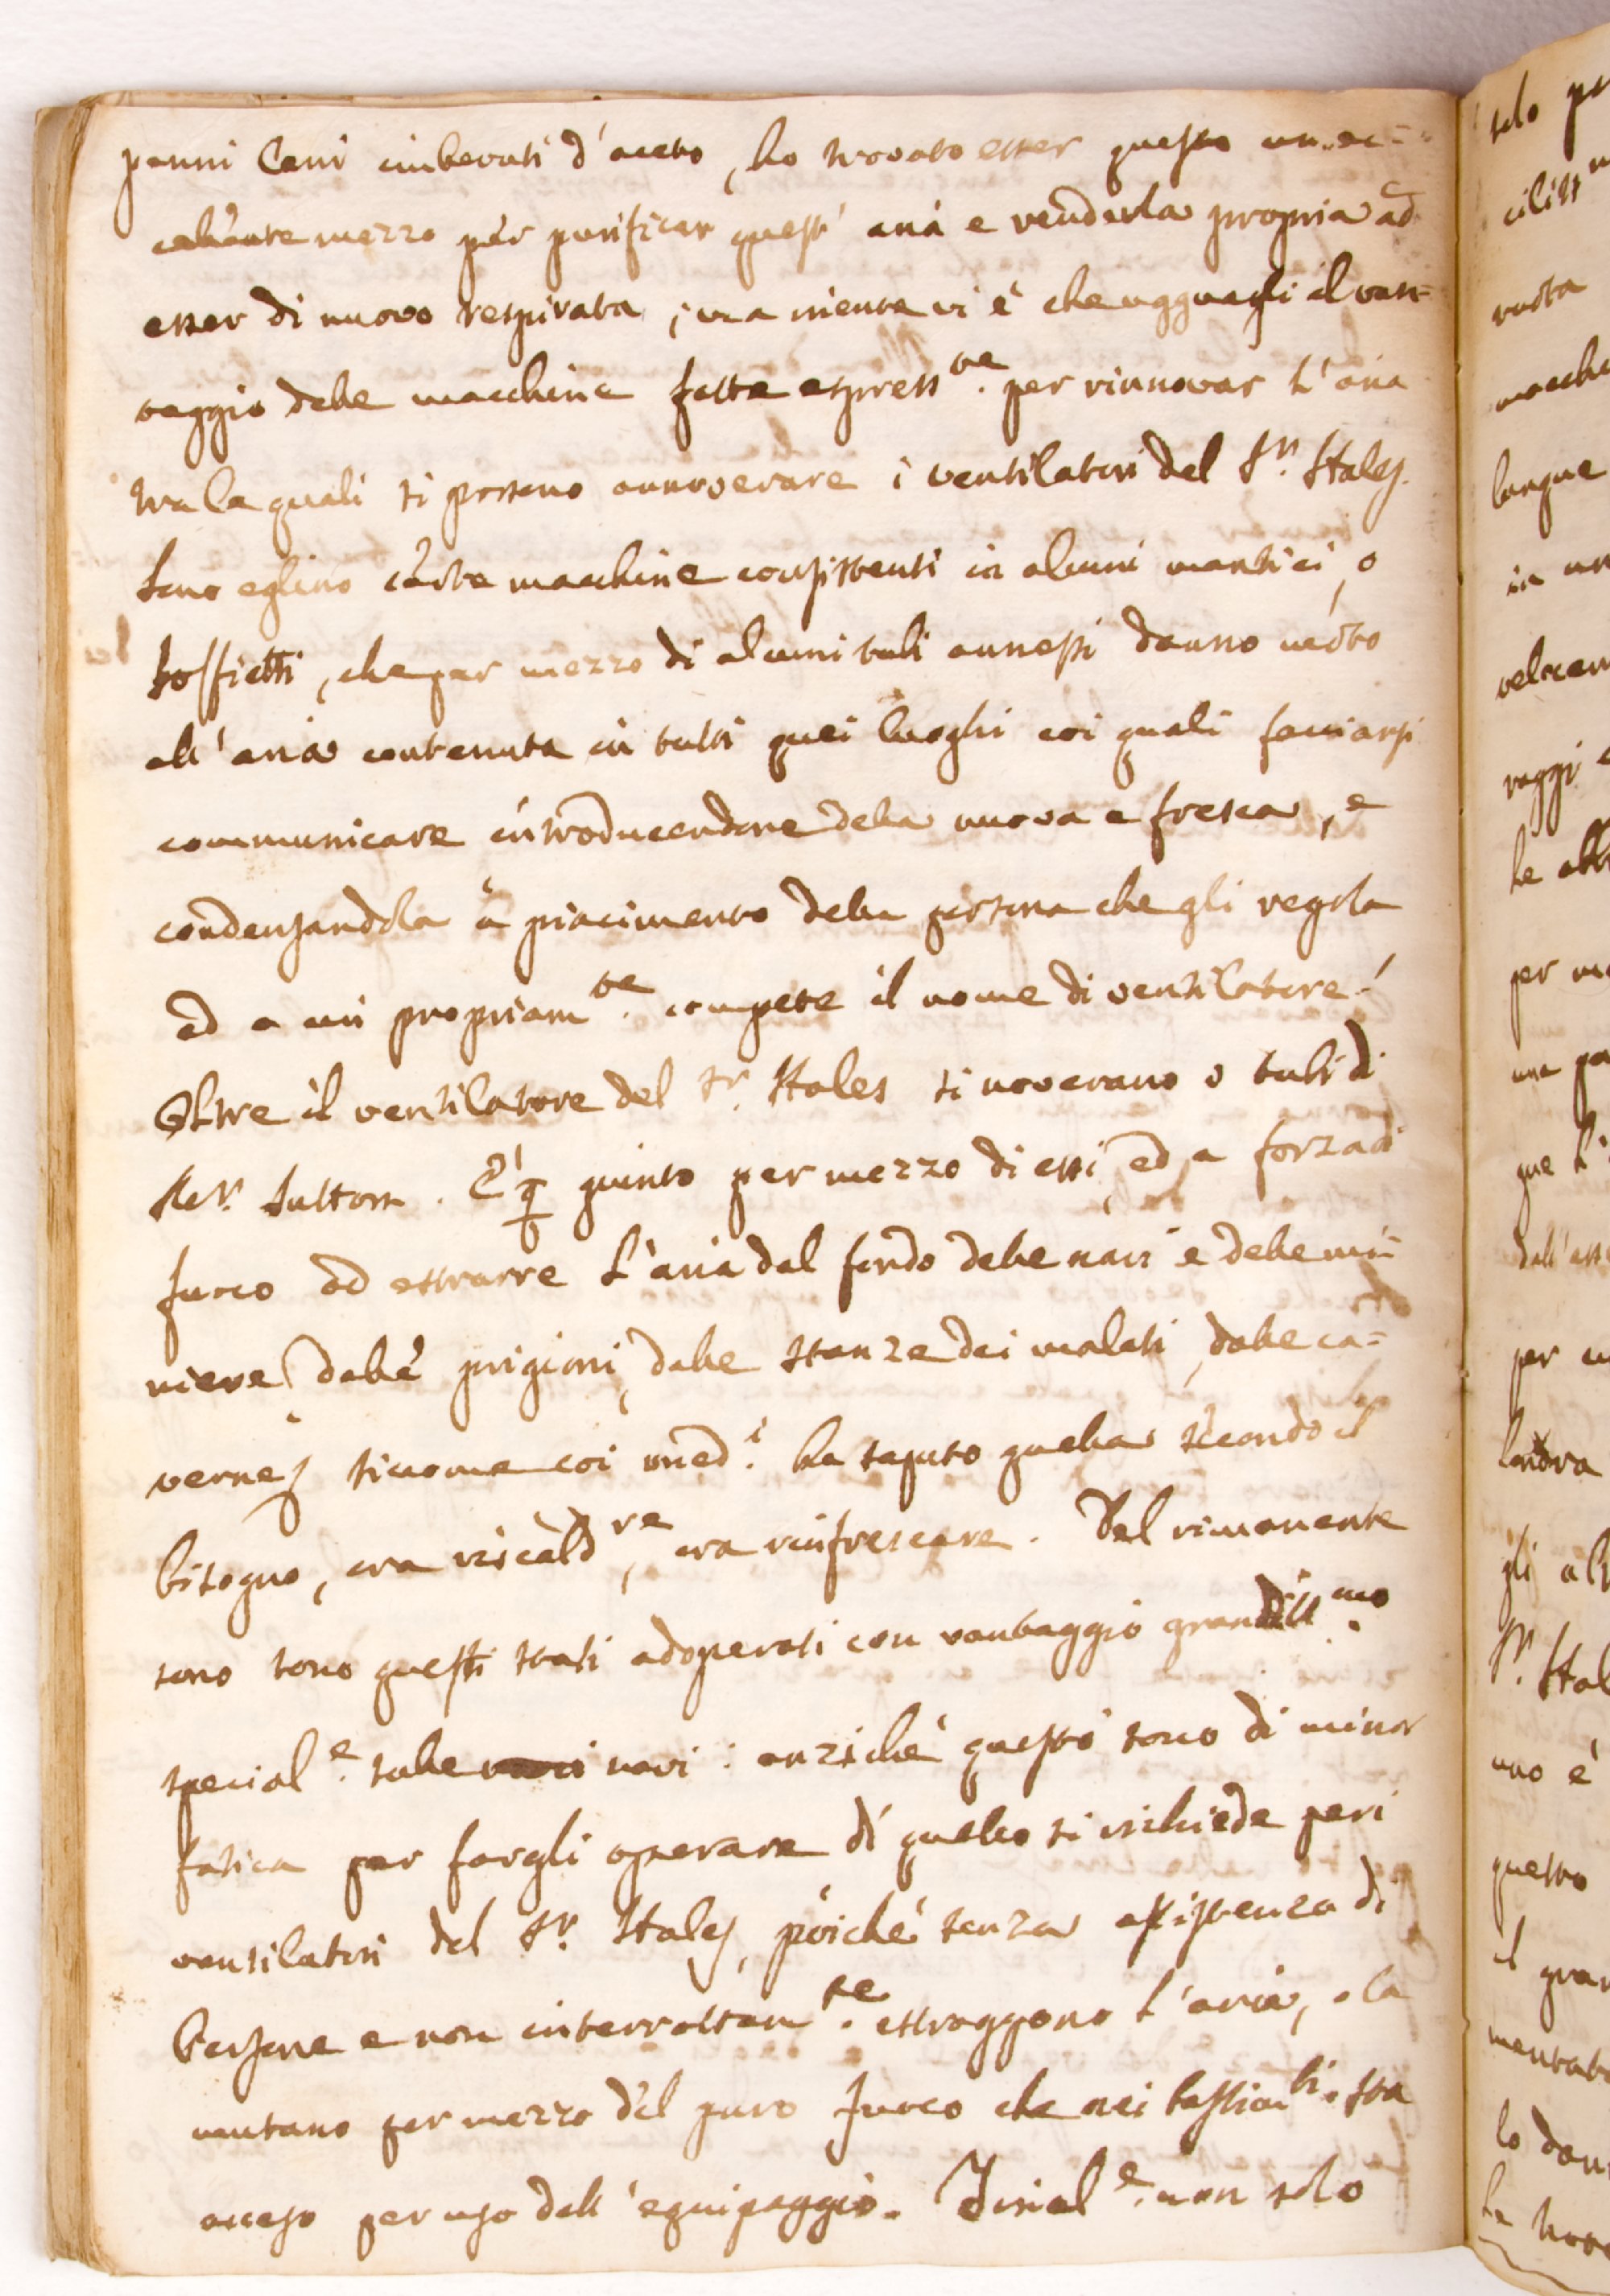 panni lani imbevuti d'aceto, ho trovato esser questo un ec=
cellente mezzo per purificar quest'aria e renderla propria ad
esser di nuovo respirata; ma niente vi è che uggguagli il van=
taggio delle macchine fatte espresste. per rinnovar l'aria
tra la quali si possono annoverare i ventilatori del Sr. Hales.
Sono eglino certe macchine consistenti in alcuni mantici, o
soffietti, che per mezzo di alcuni tubi annessi danno moto
all'aria contenuta in tutti quei luoghi coi quali facciansi
communicare introducendone della nuova e fresca, e
condensandola à piacimento della persona che gli regola
ed a cui propriamte. compete il nome di ventilatore.
Oltre il ventilatore del Sr. Hales si noverano i tubi di
Sutton. È giunto per mezzo di essi, ed a forza di
fuoco ad estrarre l'aria dal fondo delle navi e delle mi=
niere, delle prigioni, delle stanze dei malati, delle ca=
verne, siccome coi medi. ha saputo quella secondo il
bisogno, ora riscaldre, ora rinfrescare. Del rimanente
sono sono questi stati adoperati con vantaggio grandissmo.
speciale. sulle navi: anzichè questi sono di minor
fatica per fargli operare di quello si richiede per i
ventilatori del Sr. Hales, poichè senza assistenza di
Persone e non interrottamte. estraggono l'aria, o la
mutano per mezzo del puro fuoco che nei bastimti. sta
acceso per uso dell'equipaggio. non solo
solo pe
rotta
macchi
langue
in un
raggi
per
una
que l'
dall'
per
londra
gli al
Sr. Hal
uno è
questo
il gran